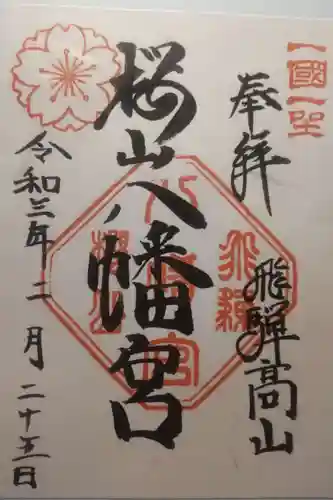 一國一社
奉拝
飛騨高山
桜山八幡宮
飛騨
八幡宮
桜山
令和三年二月二十五日